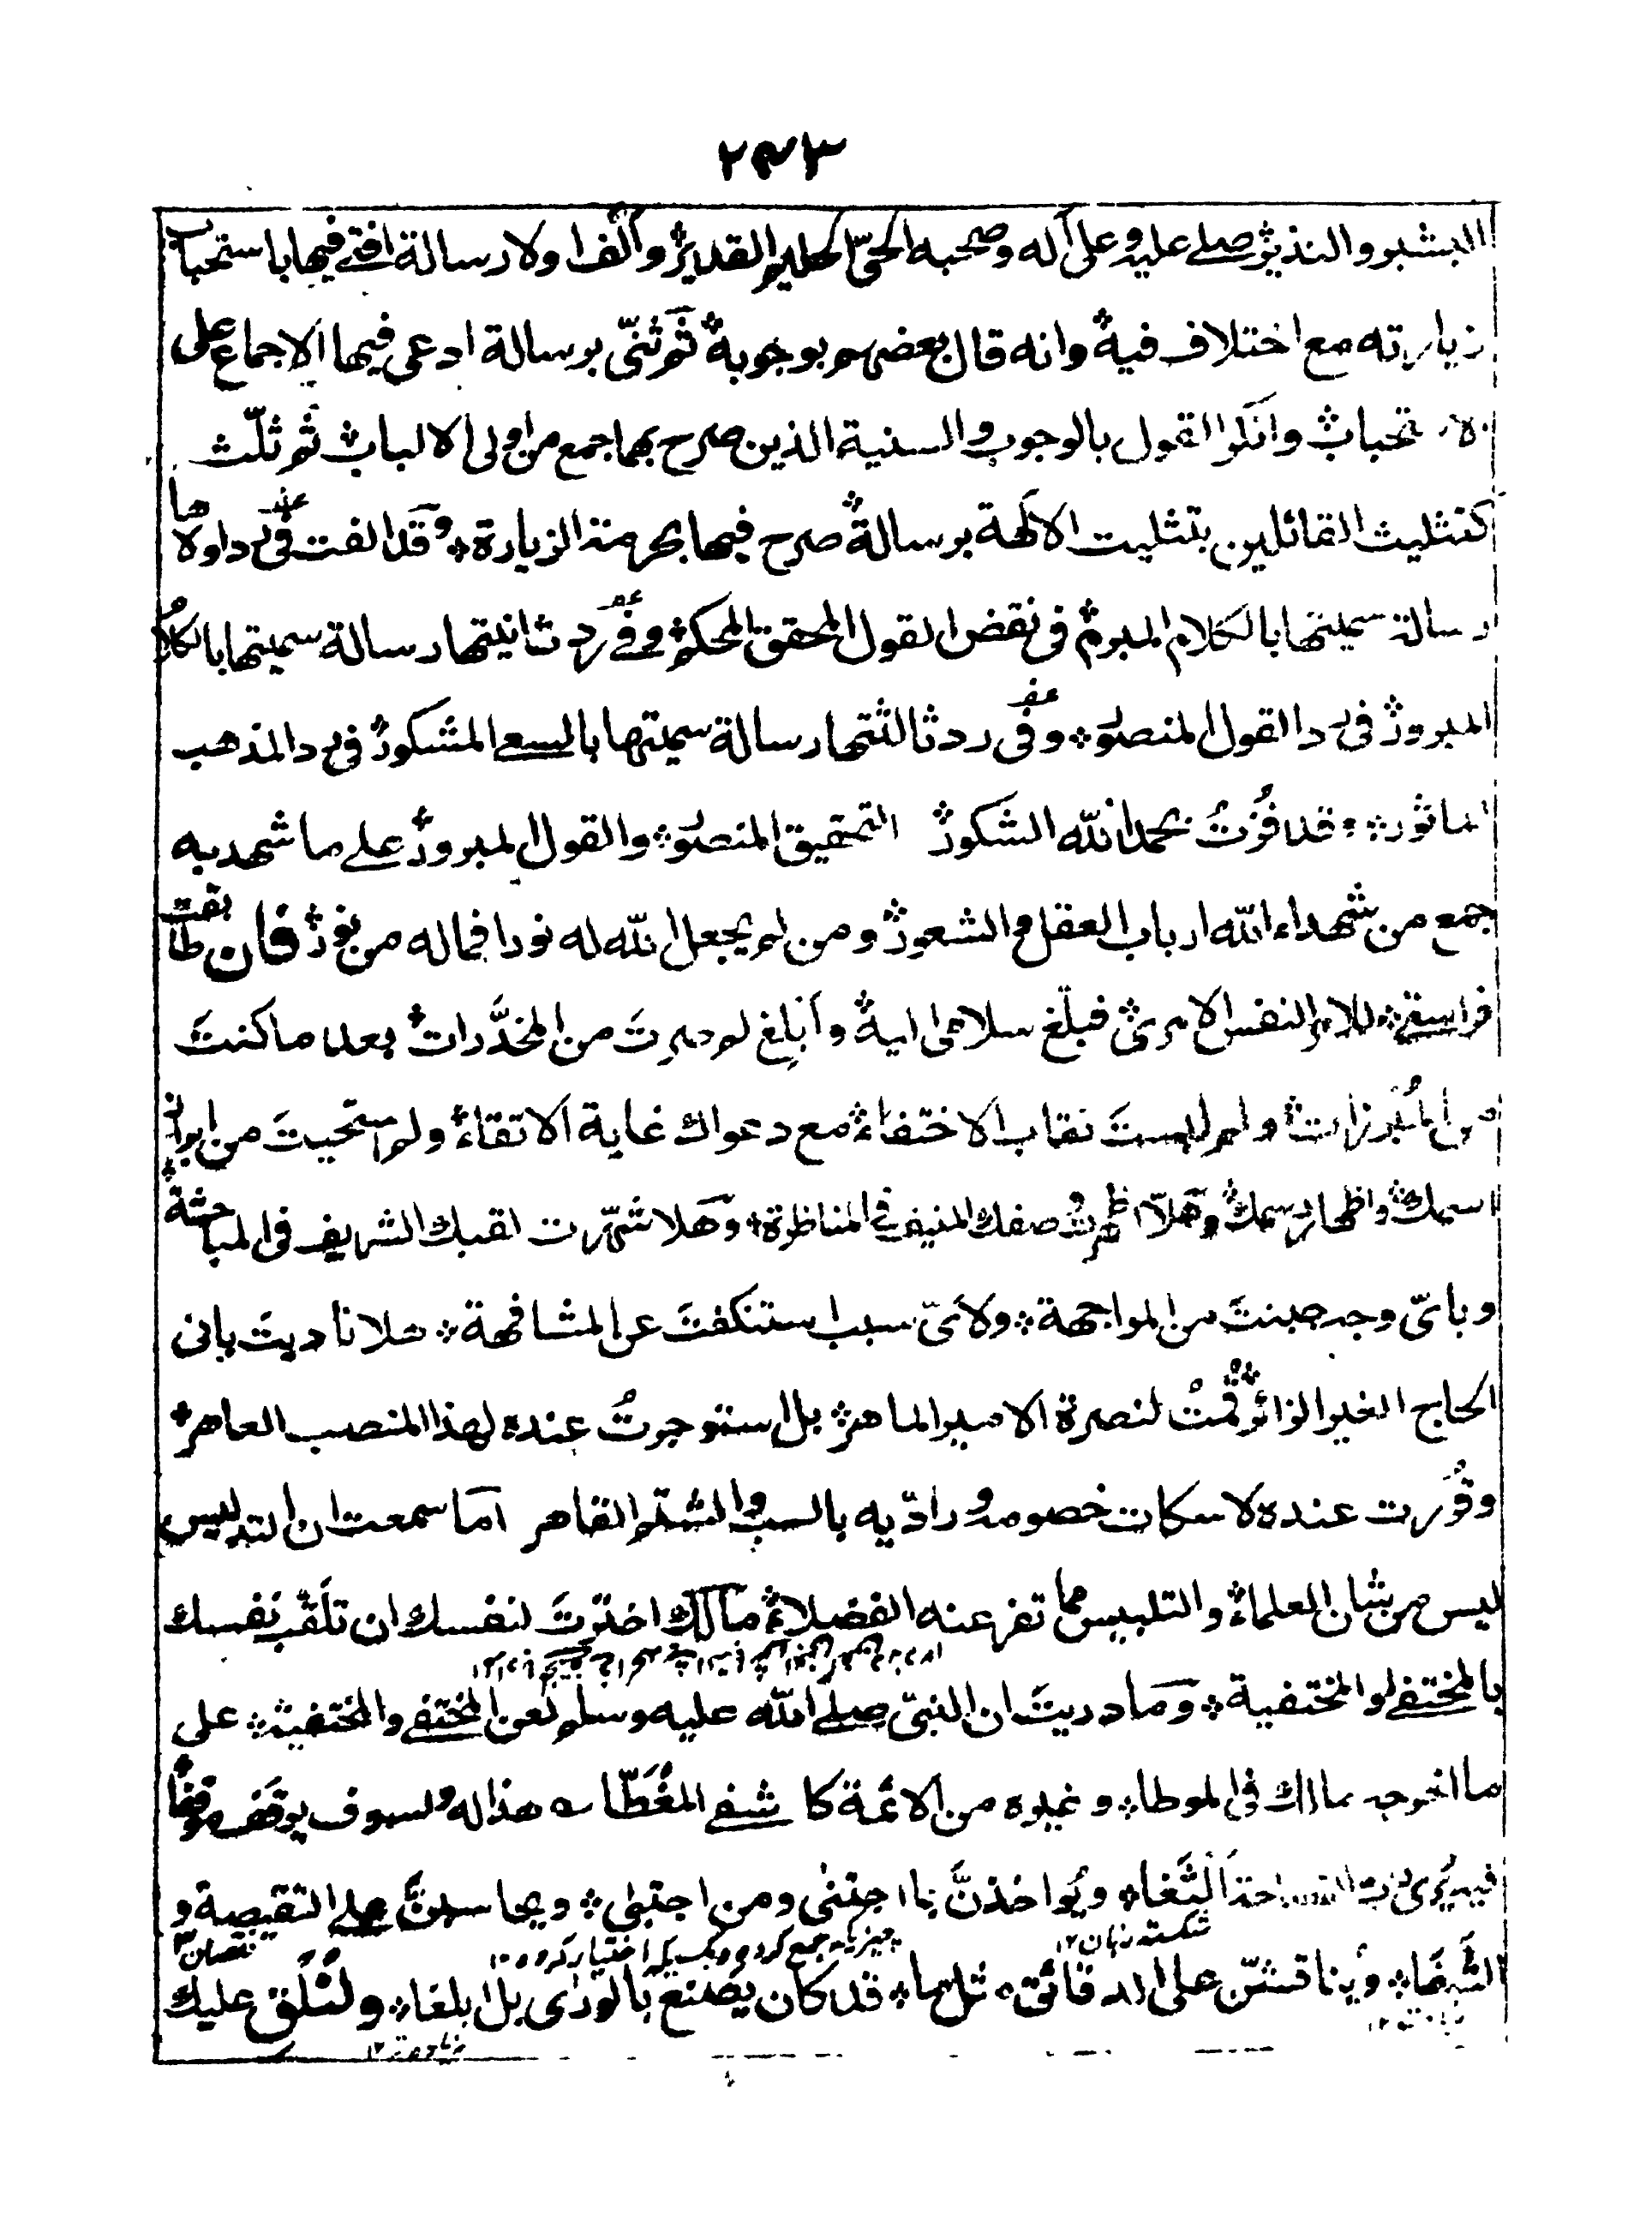 ٢٧٣
البشير والنذير صلے عليه وعلى آله وصحبه الحىّ الحليم القدير وألف اولا رسالة افتے فيها باستحباب
زيارته مع اختلاف فيه وانه قال بعضهم بوجوبه ثم ثنّى برسالة ادعى فيها الاجماع على
الاستحباب وانكر القول بالوجوب والسنية الذين صرح بهما جمع من اولى الالباب ثم ثلّث
كتثليث القائلين بتثليث الالهة برسالة صرح فيها بحرمة الزيارة وقد الفت فى رد اولاها
رسالة سميتها بالكلام المبرم فى نقض القول المحقق المحكم وفى رد ثانيتها رسالة سميتها بالكلام
المبرور فى رد القول المنصور وفى رد ثالثتها رسالة سميتها بالسعے المشكور فى رد المذهب
الماثور قد فزت بحمد الله الشكور التحقيق المنصور والقول المبرور علے ما شهد به
جمع من شهداء الله ارباب العقل والشعور ومن لم يجعل الله له نورا فما له من نور فان طابقت
فراستے للامر النفس الامرى فبلّغ سلامى اليه وأبلغ لم صرتَ من المخدَّرات بعد ما كنتَ
من المُبرزات ولم لبستَ نقاب الاختفاء مع دعواك غاية الاتقاء ولم استحييتَ من ابراز
اسمك واظهار رسمك وهلّا اظهرت وصفك المنيف فى المناظرة وهلا شهّرت لقبك الشريف فى المباحثة
وباىّ وجه جبنتَ من المواجهة ولاىّ سبب استنكفتَ عن المشافهة هلا ناديتَ بانى
الحاج الغير الزائر قُمتُ لنصرة الامير الماهر بل استوجرتُ عنده لهذا المنصب العاهر
وقُررت عنده لاسكات خصومه وراديه بالسب والشتم القاهر اما سمعت ان التدليس
ليس من شان العلماء والتلبيس مما تفر عنه الفضلاء مالك اخترتَ لنفسك ان تلَقّب نفسك
بالمختفے او المختفية وما دريتَ ان النبىّ صلے الله عليه وسلم لعن المختفے والمختفية على
ما اخرجه مالك فى الموطا وغيره من الائمة كاشفے المغَطّا هذا له ولسوف يوقف موقفا
فيه يُرى ويُواخذنَّ بما اجتنى ومن اجتبٰى ويحاسبنَّ علے النقيصة و
شكسته زبان ١٢
نقصان ١٢
الشَّغَا ويناقشنّ على الدقائق مثل ما قد كان يصنع بالورٰى بل ابلغا ولنُلق عليك